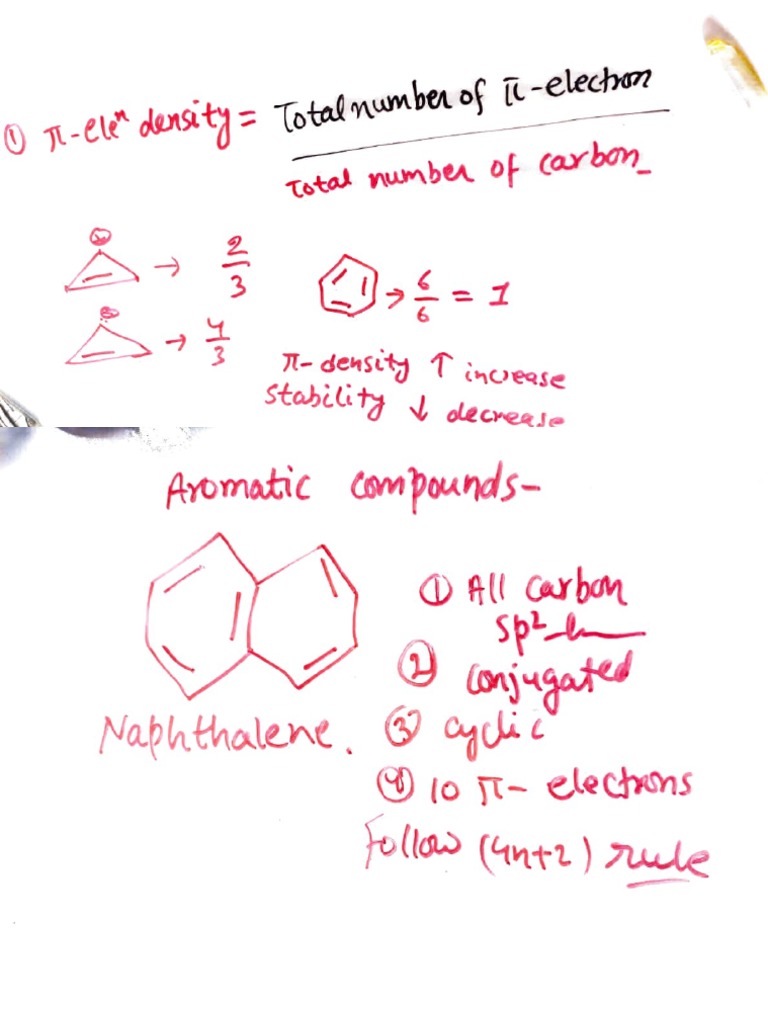 ① π-eleⁿ density = Total number of π-electron
Total number of carbon
⊕ → 2/3
→ 6/6 = 1
⊖ → 4/3
π-density ↑ increase
stability ↓ decrease
Aromatic compounds-
① All carbon
sp²
② conjugated
Naphthalene. ③ cyclic
④ 10 π- electrons
Follow (4n+2) rule